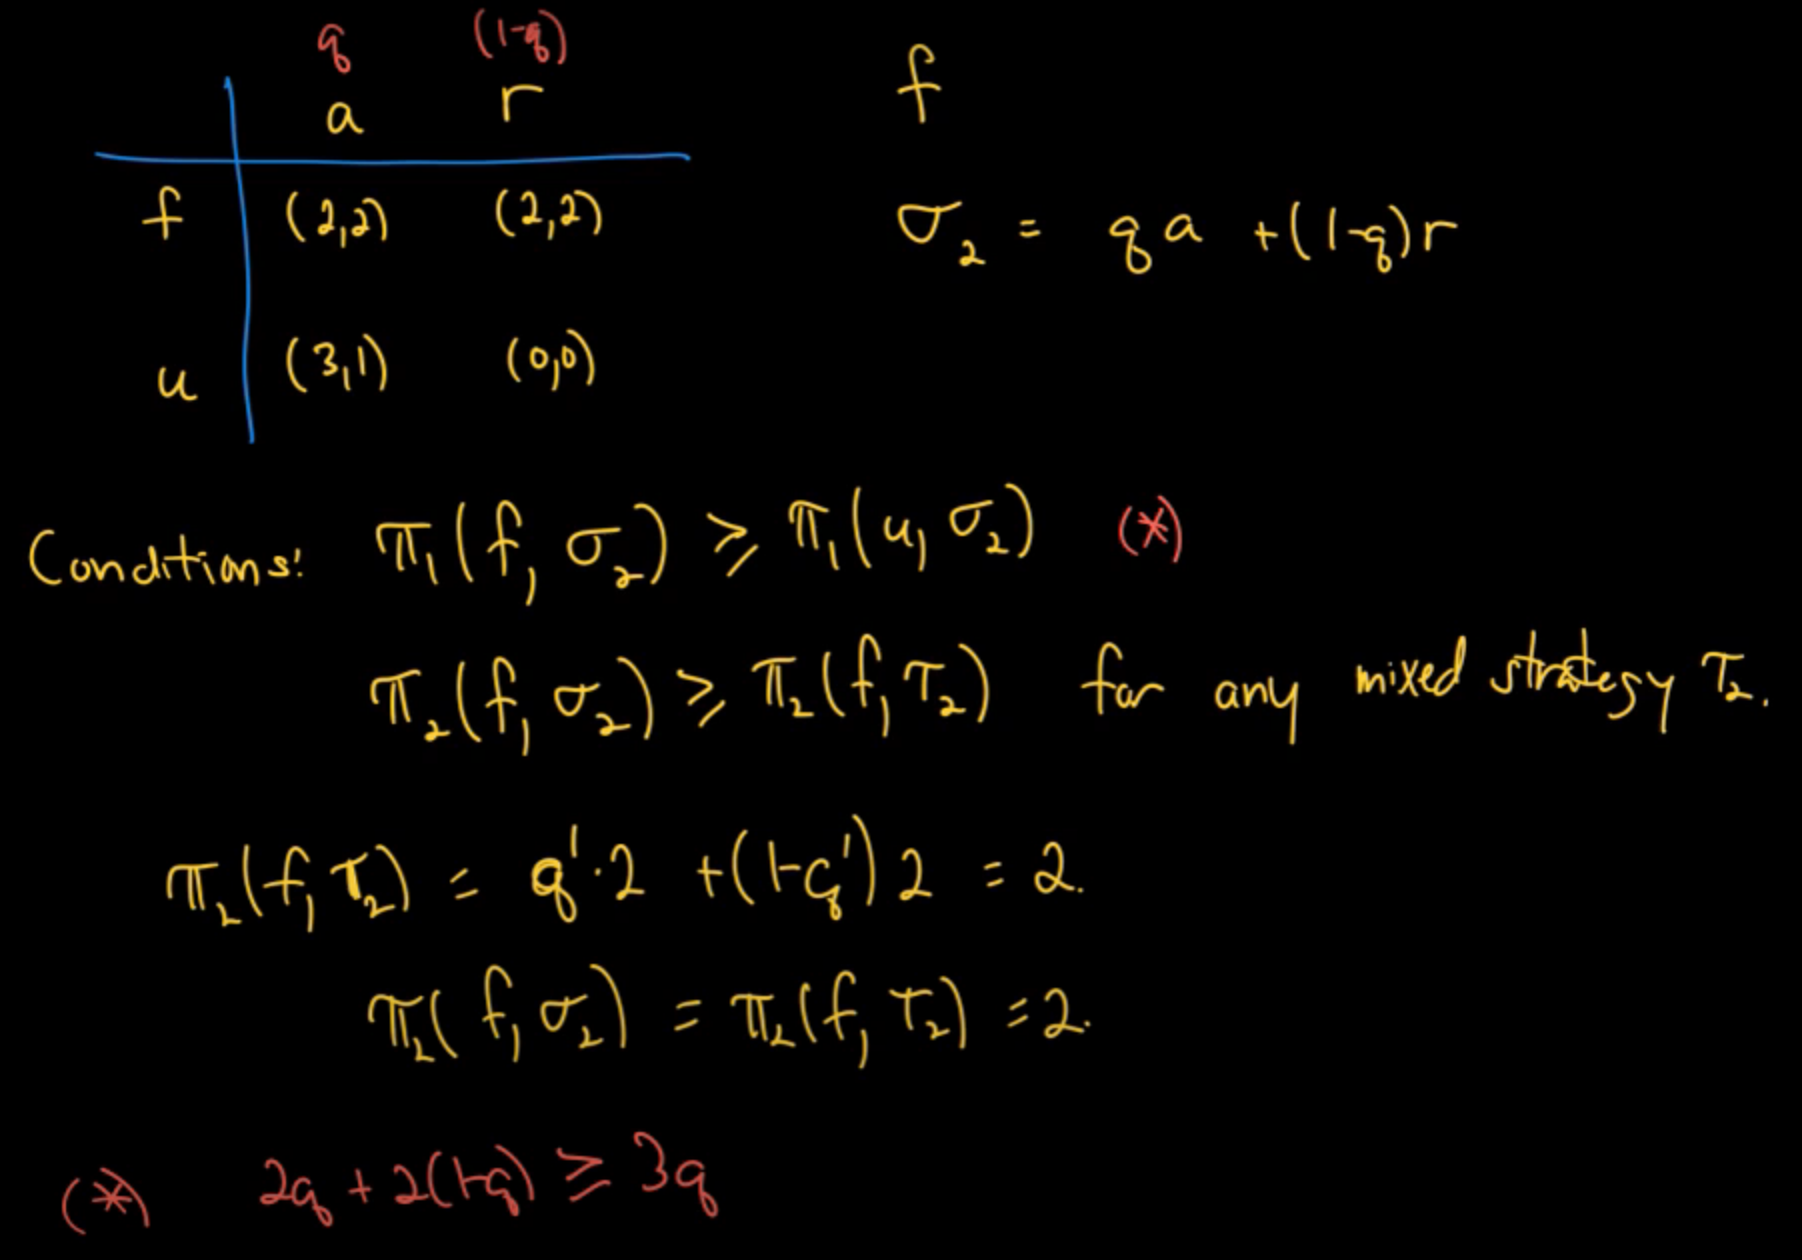 q (1-q)
a r
f (2,2) (2,2)
u (3,1) (0,0)
f
σ₂ = qa + (1-q)r
Conditions: π₁(f, σ₂) ≥ π₁(u, σ₂) (*)
π₂(f, σ₂) ≥ π₂(f, τ₂) for any mixed strategy τ₂.
π₂(f, τ₂) = q'·2 + (1-q')2 = 2.
π₂(f, σ₂) = π₂(f, τ₂) = 2.
(*) 2q + 2(1-q) ≥ 3q